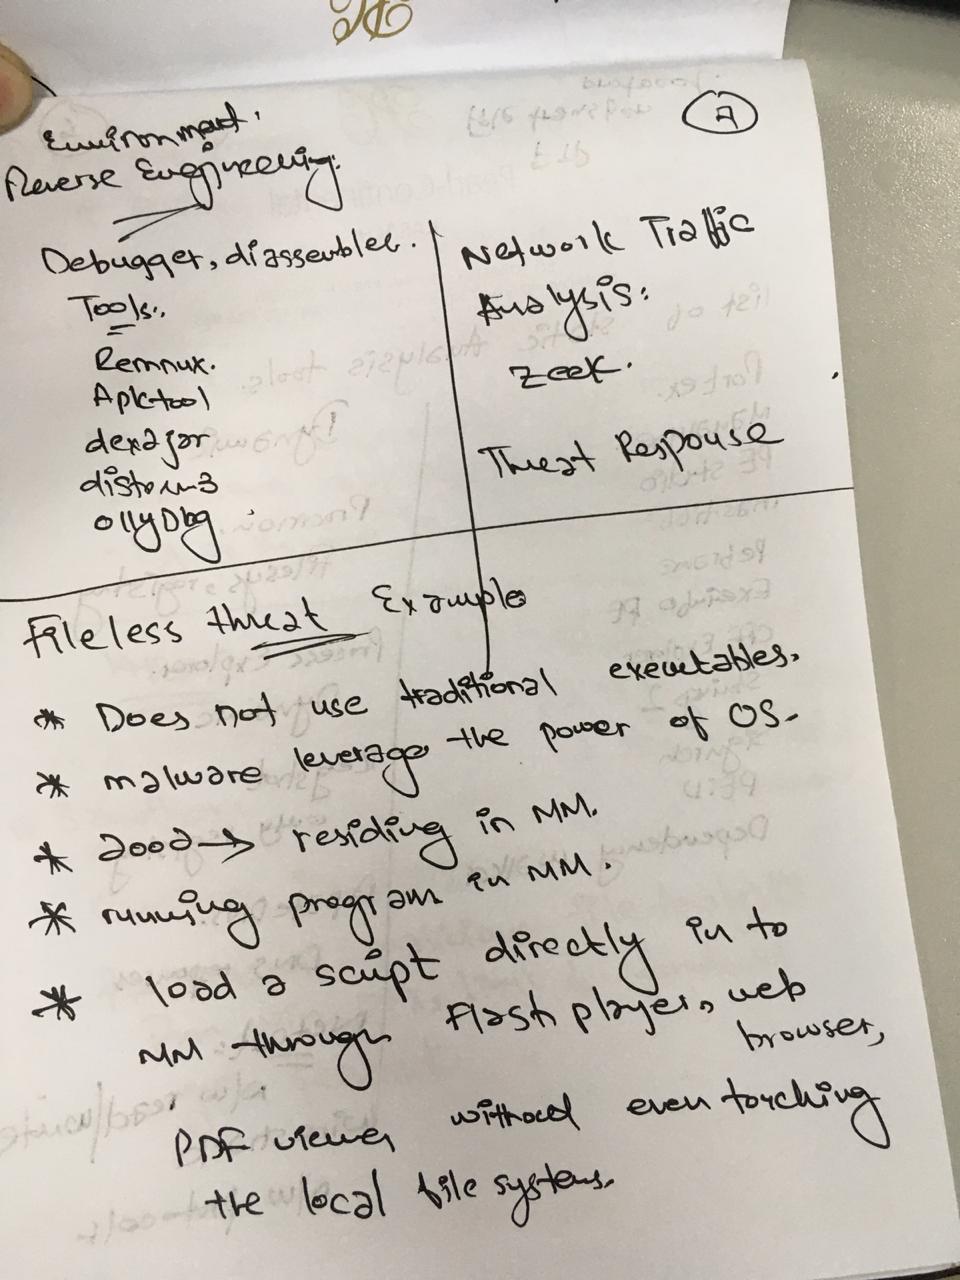 Environment.
7
Reverse Engineering:
Debugger, diassembler.
Tools:
Remnux.
Apktool
dex2jar
distorm3
ollyDbg
Network Traffic
Analysis:
Zeek.
Threat Response
Fileless threat Example
* Does not use traditional executables.
* malware leverage the power of OS.
* 2002 → residing in MM.
* running program in MM.
* load a script directly in to
MM through Flash player, web
browser,
PDF viewer without even torching
the local file systems.